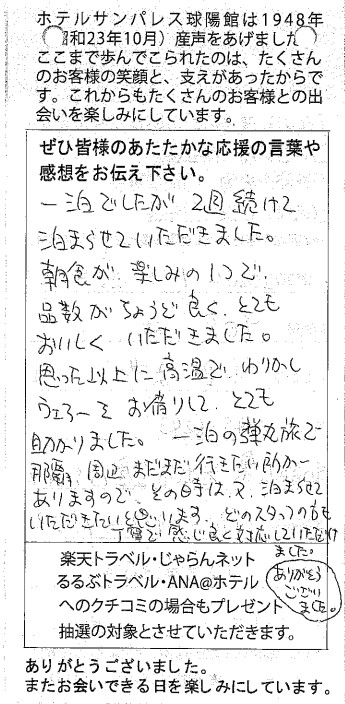 ホテルサンパレス球陽館は1948年
和23年10月）産声をあげました
ここまで歩んでこられたのは、たくさん
のお客様の笑顔と、支えがあったからで
す。これからもたくさんのお客様との出
会いを楽しみにしています。
ぜひ皆様のあたたかな応援の言葉や
感想をお伝え下さい。
一泊でしたが 2週 続けて
泊まらせていただきました。
朝食が 楽しみの1つで
品数がちょうど良く、とても
おいしく いただきました。
思った以上に高温で わりかし
をお借りして、とても
助かりました。 一泊の弾丸旅で
那覇 周辺 まだまだ行きたい所が
ありますので、その時は又 泊まらせて
いただきたいと思います。 どのスタッフの方も
丁寧で感じ良く対応していただけ
ました。
ありがとう
ござい
ました。
楽天トラベル・じゃらんネット
るるぶトラベル・ANA@ホテル
へのクチコミの場合もプレゼント
抽選の対象とさせていただきます。
ありがとうございました。
またお会いできる日を楽しみにしています。